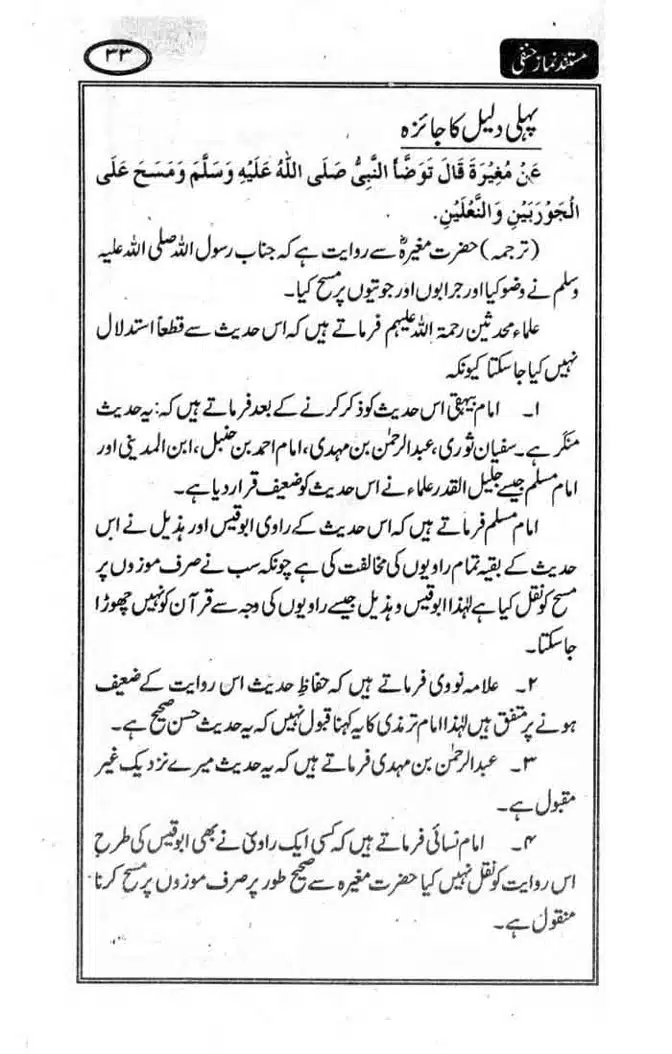 مستند نماز حنفی
۳۳
پہلی دلیل کا جائزہ
عَنْ مُغِيْرَةَ قَالَ تَوَضَّأَ النَّبِيُّ صَلَى اللهُ عَلَيْهِ وَسَلَّمَ وَمَسَحَ عَلَى
الْجَوْرَبَيْنِ وَالنَّعْلَيْنِ.
(ترجمہ) حضرت مغیرہؓ سے روایت ہے کہ جناب رسول اللہ صلی اللہ علیہ
وسلم نے وضو کیا اور جرابوں اور جوتیوں پر مسح کیا۔
علماء محدثین رحمۃ اللہ علیہم فرماتے ہیں کہ اس حدیث سے قطعاً استدلال
نہیں کیا جا سکتا کیونکہ
۱۔ امام بیہقی اس حدیث کو ذکر کرنے کے بعد فرماتے ہیں کہ: یہ حدیث
منکر ہے۔ سفیان ثوری، عبدالرحمٰن بن مہدی، امام احمد بن حنبل، ابن المدینی اور
امام مسلم جیسے جلیل القدر علماء نے اس حدیث کو ضعیف قرار دیا ہے۔
امام مسلم فرماتے ہیں کہ اس حدیث کے راوی ابوقیس اور ہذیل نے اس
حدیث کے بقیہ تمام راویوں کی مخالفت کی ہے چونکہ سب نے صرف موزوں پر
مسح کو نقل کیا ہے لہٰذا ابوقیس و ہذیل جیسے راویوں کی وجہ سے قرآن کو نہیں چھوڑا
جا سکتا۔
۲۔ علامہ نووی فرماتے ہیں کہ حفاظِ حدیث اس روایت کے ضعیف
ہونے پر متفق ہیں لہٰذا امام ترمذی کا یہ کہنا قبول نہیں کہ یہ حدیث حسن صحیح ہے۔
۳۔ عبدالرحمٰن بن مہدی فرماتے ہیں کہ یہ حدیث میرے نزدیک غیر
مقبول ہے۔
۴۔ امام نسائی فرماتے ہیں کہ کسی ایک راوی نے بھی ابوقیس کی طرح
اس روایت کو نقل نہیں کیا حضرت مغیرہ سے صحیح طور پر صرف موزوں پر مسح کرنا
منقول ہے۔